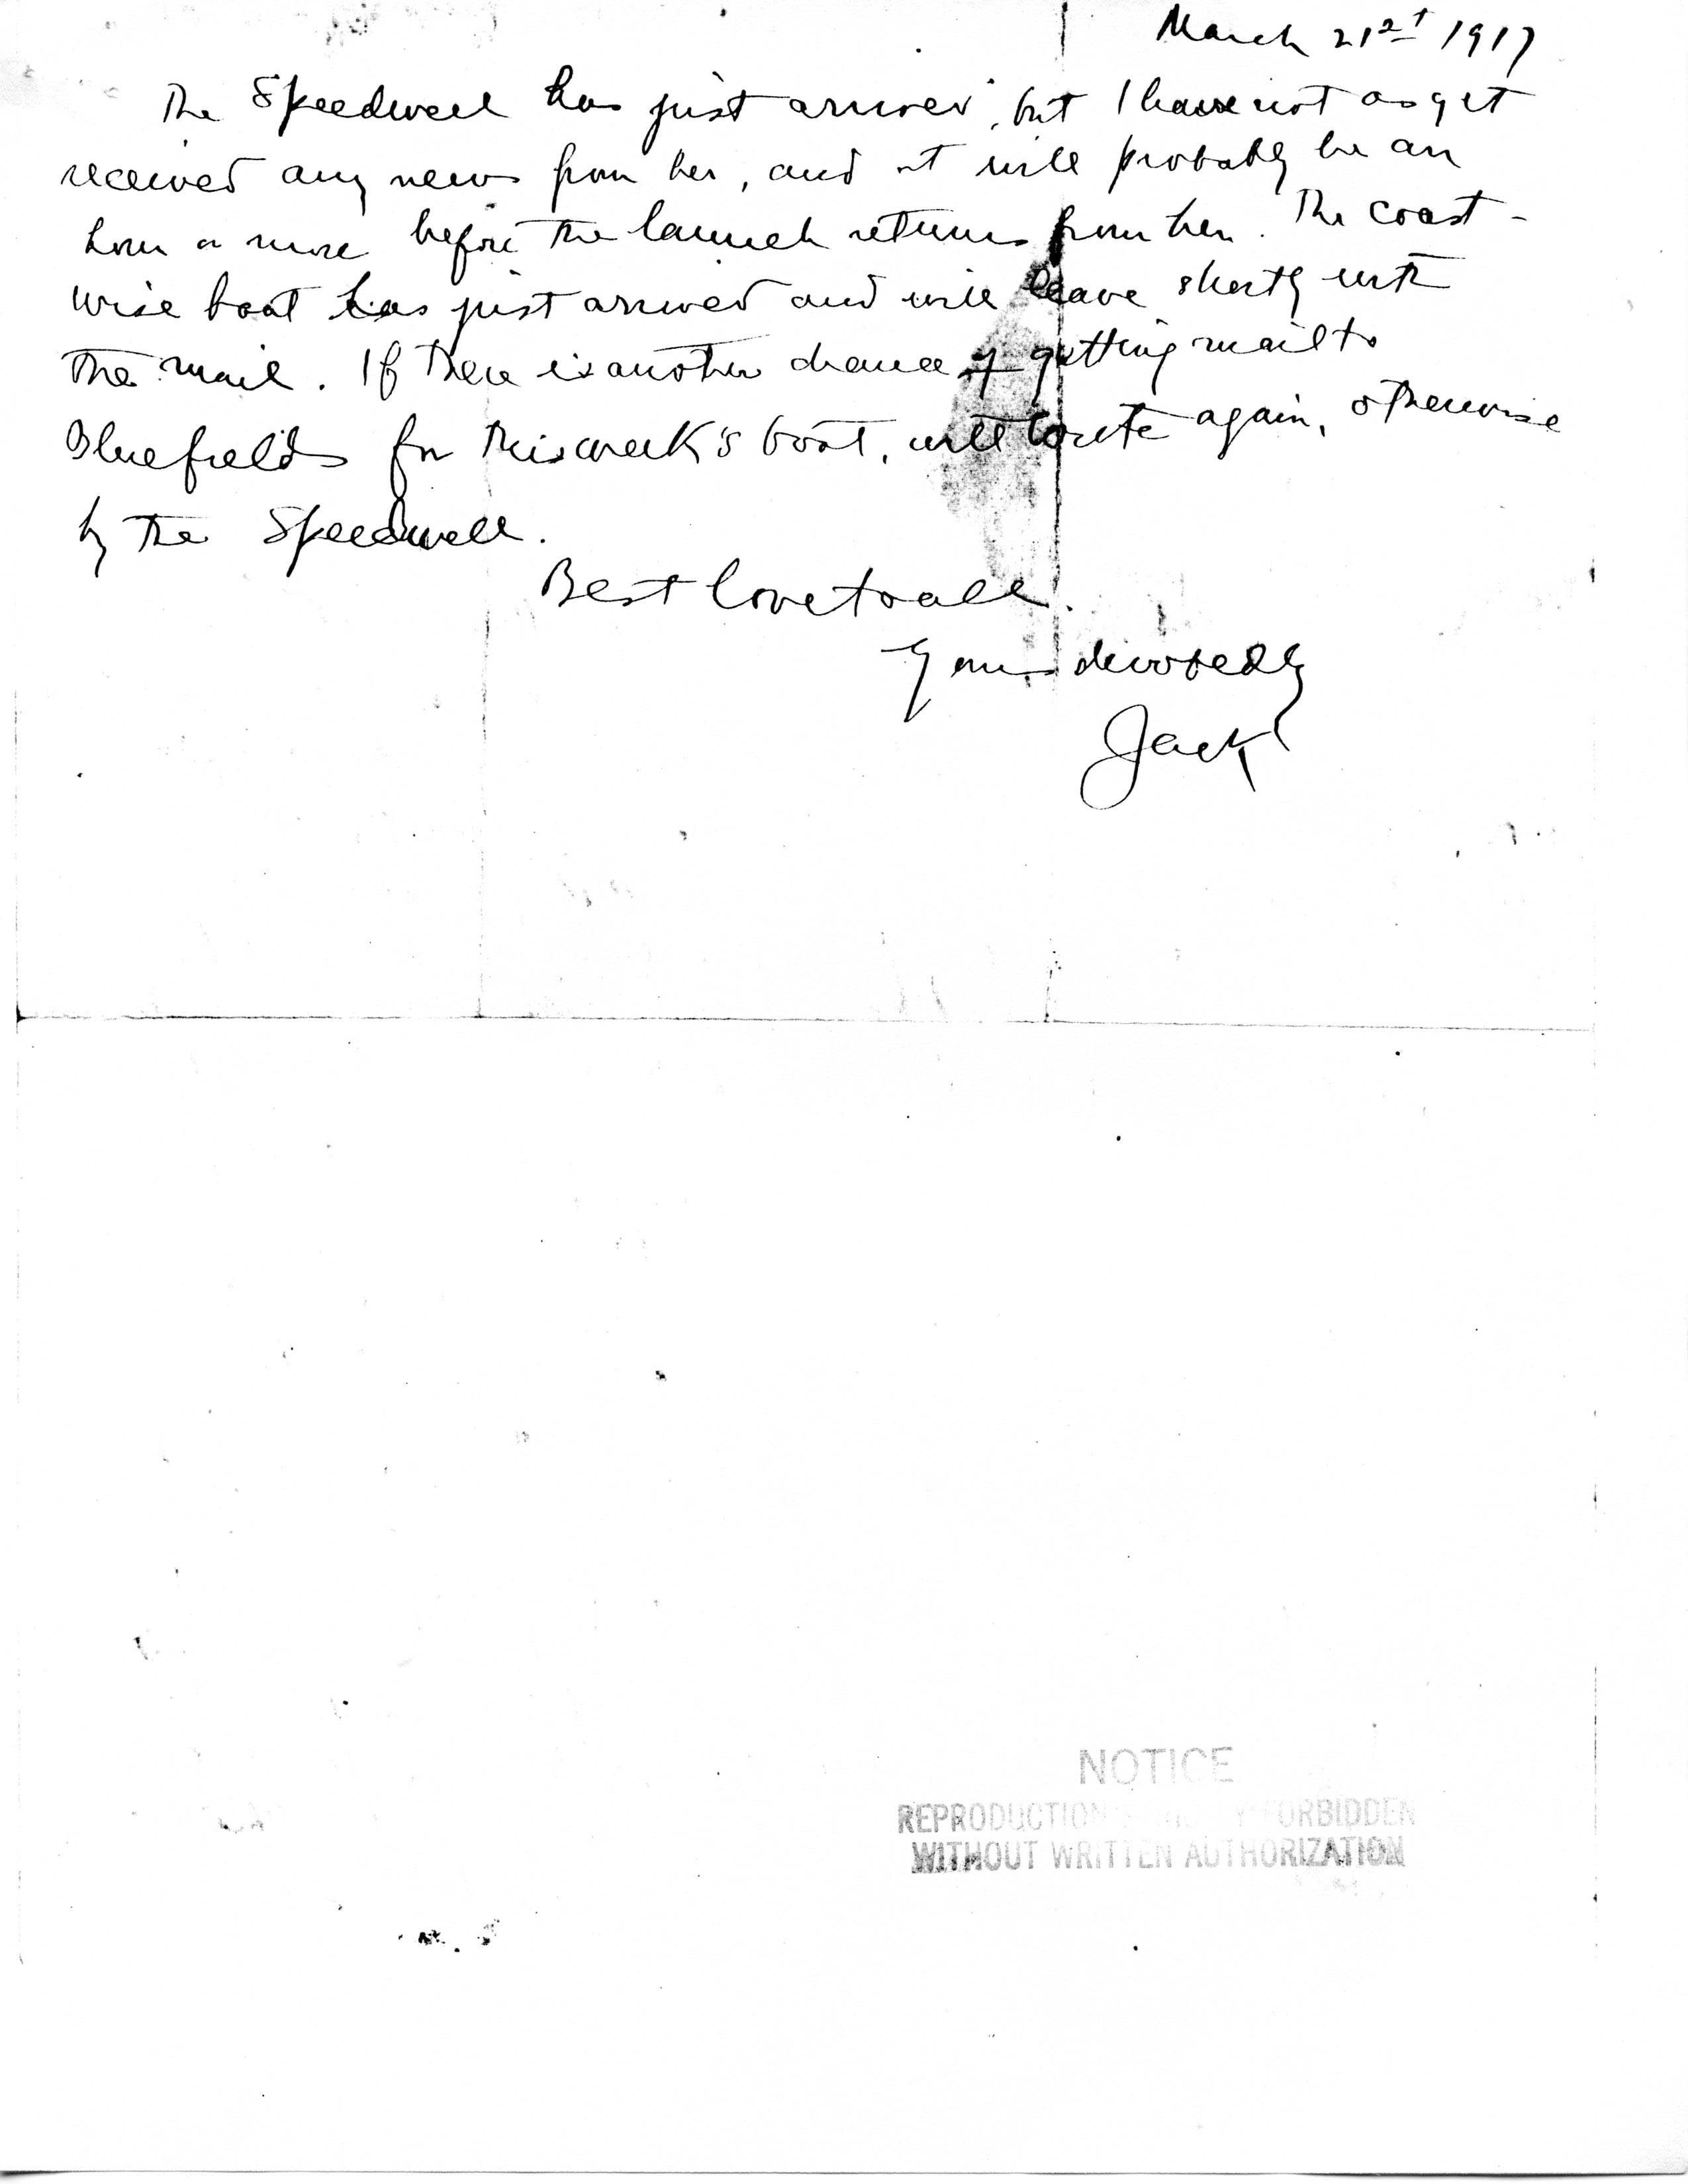 March 21st 1917
The Speedwell has just arrived, but I have not as yet
received any news from her, and it will probably be an
hour or more before the launch returns from her. The coast-
wise boat has just arrived and will leave shortly with
the mail. If there is another chance of getting mail to
Bluefields for this week's boat, will write again, otherwise
by the Speedwell.
Best love to all.
Yours devotedly
Jack
NOTICE
REPRODUCTION STRICTLY FORBIDDEN
WITHOUT WRITTEN AUTHORIZATION